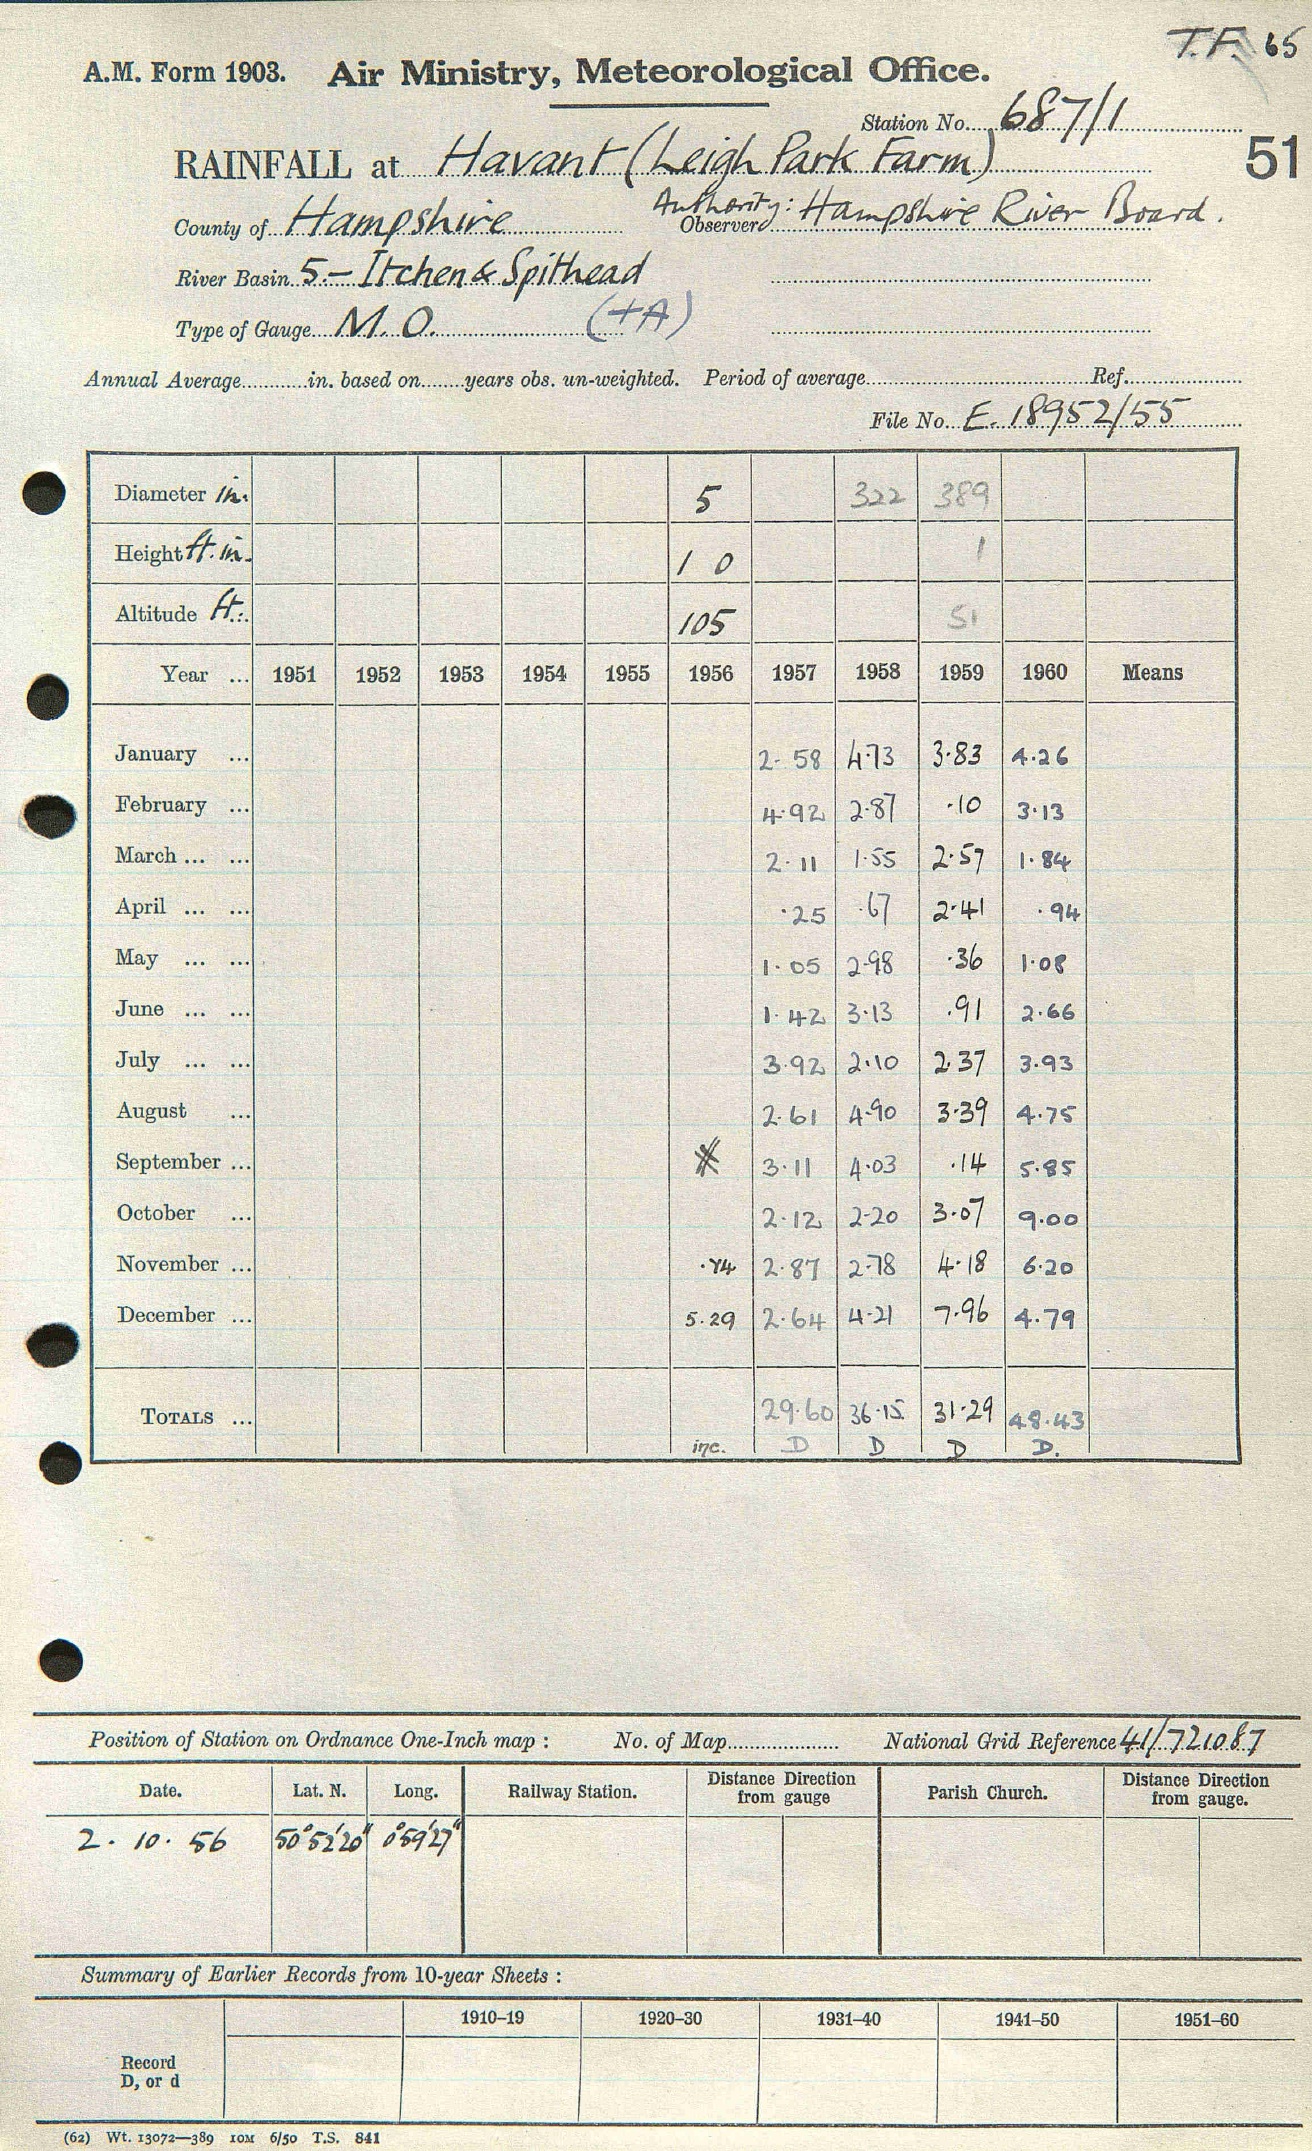 T.F. 65
A.M. Form 1903. Air Ministry, Meteorological Office.
Station No. 687/1
RAINFALL at Havant (Leigh Park Farm) 51
County of Hampshire Authority: Observer Hampshire River Board.
River Basin 5.- Itchen & Spithead
Type of Gauge M.O. (+A)
Annual Average............in. based on........years obs. un-weighted. Period of average............ Ref............
File No. E. 18952/55
Diameter in. 5 322 389
Height ft. in. 1 0 1
Altitude ft. 105 51
Year ... 1951 1952 1953 1954 1955 1956 1957 1958 1959 1960 Means
January ... 2.58 4.73 3.83 4.26
February ... 4.92 2.87 .10 3.13
March ... ... 2.11 1.55 2.57 1.84
April ... ... .25 .67 2.41 .94
May ... ... 1.05 2.98 .36 1.08
June ... ... 1.42 3.13 .91 2.66
July ... ... 3.92 2.10 2.37 3.93
August ... 2.61 4.90 3.39 4.75
September ... 3.11 4.03 .14 5.85
October ... 2.12 2.20 3.07 9.00
November ... .74 2.87 2.78 4.18 6.20
December ... 5.29 2.64 4.21 7.96 4.79
TOTALS ... 29.60 36.15 31.29 48.43
inc. D D D D.
Position of Station on Ordnance One-Inch map : No. of Map.................... National Grid Reference 41/721087
Date. Lat. N. Long. Railway Station. Distance Direction from gauge Parish Church. Distance Direction from gauge.
2. 10. 56 50°52'20" 0°59'27"
Summary of Earlier Records from 10-year Sheets :
1910–19 1920–30 1931–40 1941–50 1951–60
Record
D, or d
(62) Wt. 13072—389 10M 6/50 T.S. 841